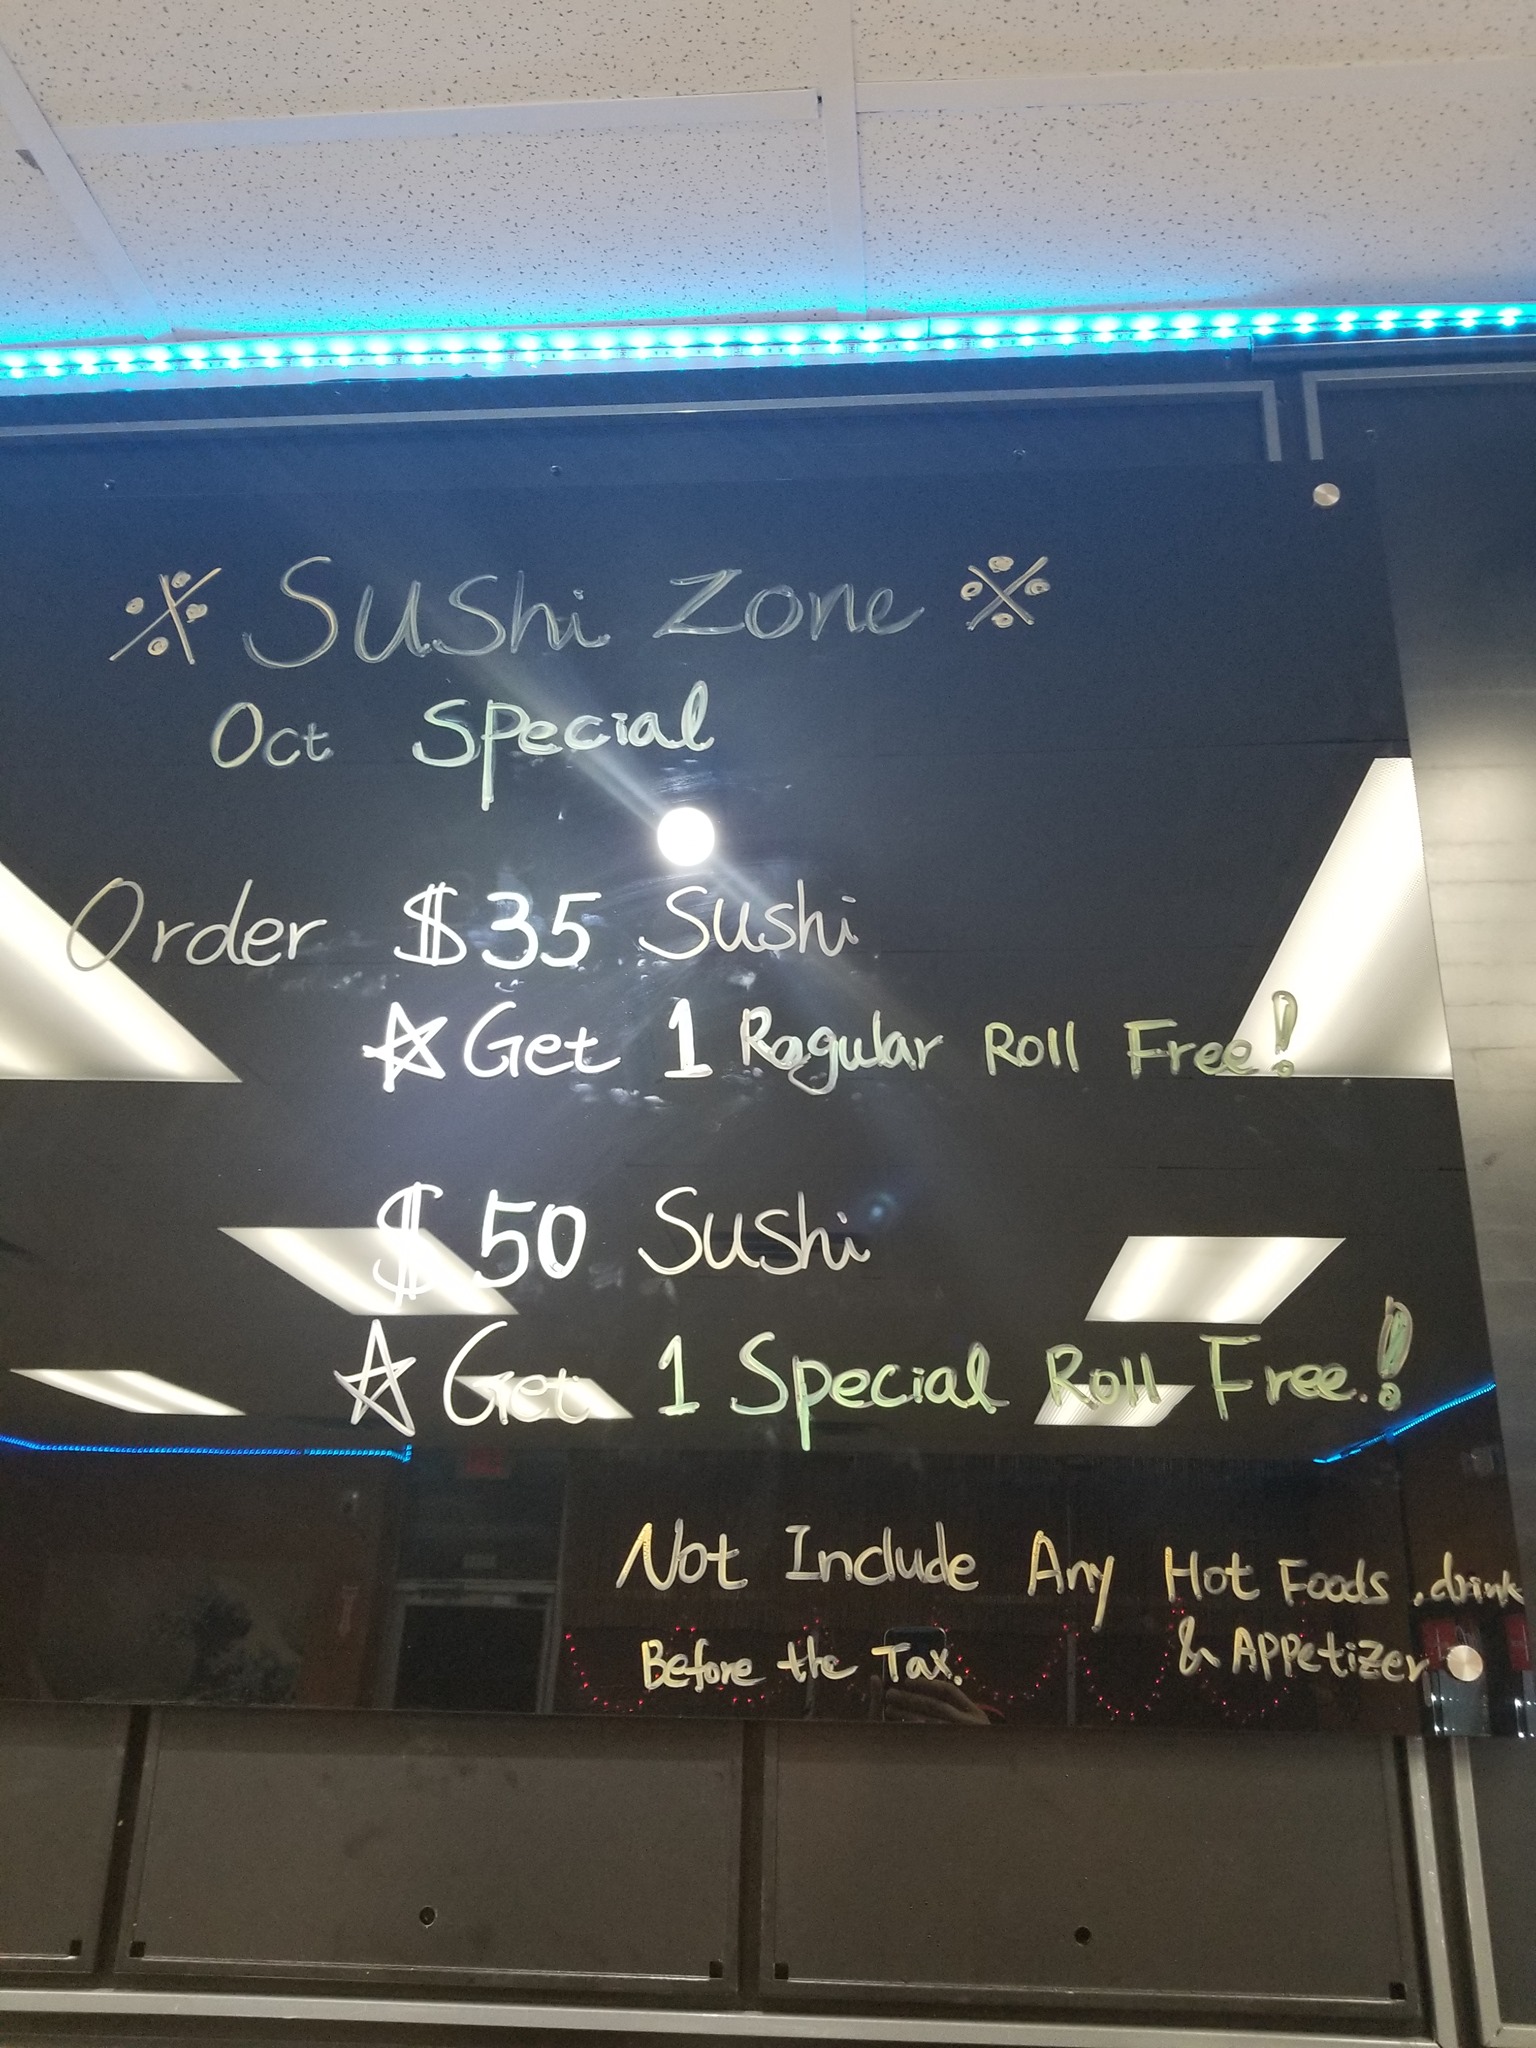 ※ Sushi Zone ※
Oct Special
Order $35 Sushi
☆ Get 1 Regular Roll Free!
$50 Sushi
☆ Get 1 Special Roll Free.!
Not Include Any Hot Foods, drink
& Appetizer
Before the Tax.